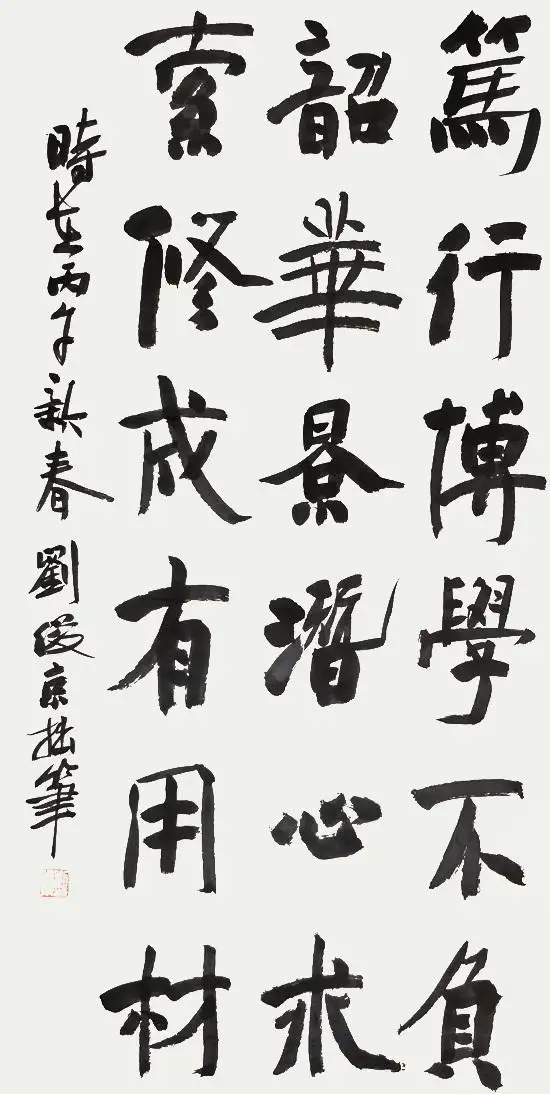 篤行博學不負
韶華景潛心求
索修成有用材
時在丙午新春 劉俊京拙筆